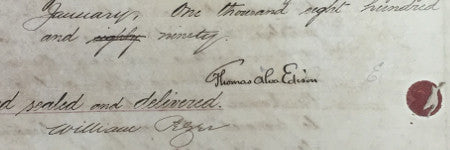 January, One thousand eight hundred
and eighty ninety.
Thomas Alva Edison
d sealed and delivered.
William